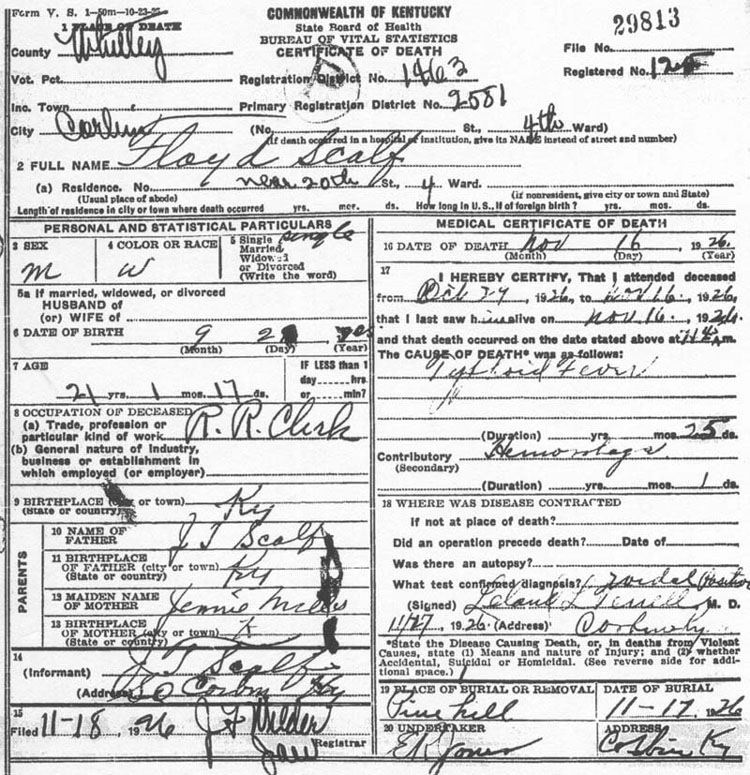 Form V. S. 1-50m-10-23-
COMMONWEALTH OF KENTUCKY
State Board of Health
BUREAU OF VITAL STATISTICS
CERTIFICATE OF DEATH
29813
1 PLACE OF DEATH
County Whitley
File No.
Registered No. 125
Vot. Pct.
Registration District No. 1463
Inc. Town
Primary Registration District No. 2581
City Corbin (No. St., 4th Ward)
(If death occurred in a hospital or institution, give its NAME instead of street and number)
2 FULL NAME Floyd Scalf
(a) Residence. No. near 20th St., 4 Ward.
(Usual place of abode) (If nonresident, give city or town and State)
Length of residence in city or town where death occurred yrs. mos. ds. How long in U.S., if of foreign birth? yrs. mos. ds.
PERSONAL AND STATISTICAL PARTICULARS
3 SEX M
4 COLOR OR RACE W
5 Single Married Widowed or Divorced (Write the word) single
5a If married, widowed, or divorced
HUSBAND of
(or) WIFE of
6 DATE OF BIRTH 9
(Month) (Day) (Year)
7 AGE
21 yrs. 1 mos. 17 ds.
IF LESS than 1
day hrs
or min?
8 OCCUPATION OF DECEASED
(a) Trade, profession or
particular kind of work R. R. Clerk
(b) General nature of Industry,
business or establishment in
which employed (or employer)
9 BIRTHPLACE (city or town)
(State or country) Ky
PARENTS
10 NAME OF
FATHER J T Scalf
11 BIRTHPLACE
OF FATHER (city or town)
(State or country) Ky
12 MAIDEN NAME
OF MOTHER Jennie
13 BIRTHPLACE
OF MOTHER (city or town)
(State or country) K
14
(Informant) J T Scalf
(Address) So Corbin Ky
15
Filed 11-18, 1926 J F Wilder
Registrar
MEDICAL CERTIFICATE OF DEATH
16 DATE OF DEATH Nov 16, 1926
(Month) (Day) (Year)
17
I HEREBY CERTIFY, That I attended deceased
from Oct, 1926, to Nov 16, 1926,
that I last saw him alive on Nov 16, 1926
and that death occurred on the date stated above at m.
The CAUSE OF DEATH* was as follows:
Typhoid Fever
(Duration) yrs. mos. 25 ds.
Contributory Hemorrhage
(Secondary)
(Duration) yrs. mos. 1 ds.
18 WHERE WAS DISEASE CONTRACTED
If not at place of death?
Did an operation precede death? Date of
Was there an autopsy?
What test confirmed diagnosis?
(Signed) M. D.
1926 (Address) Corbin Ky
*State the Disease Causing Death, or, in deaths from Violent
Causes, state (1) Means and nature of Injury; and (2) whether
Accidental, Suicidal or Homicidal. (See reverse side for addi-
tional space.)
19 PLACE OF BURIAL OR REMOVAL
Pine Hill
DATE OF BURIAL
11-17, 1926
20 UNDERTAKER
E R Jones
ADDRESS
Corbin Ky